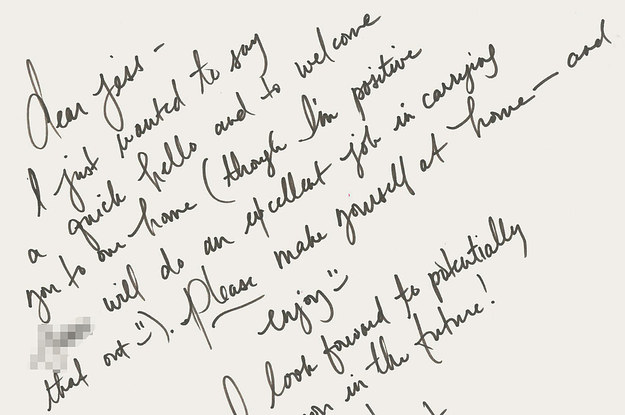 Dear Jess -
I just wanted to say
a quick hello and to welcome
you to our home (though I'm positive
will do an excellent job in carrying
that out =)). Please make yourself at home — and
enjoy =)
I look forward to potentially
in the future!